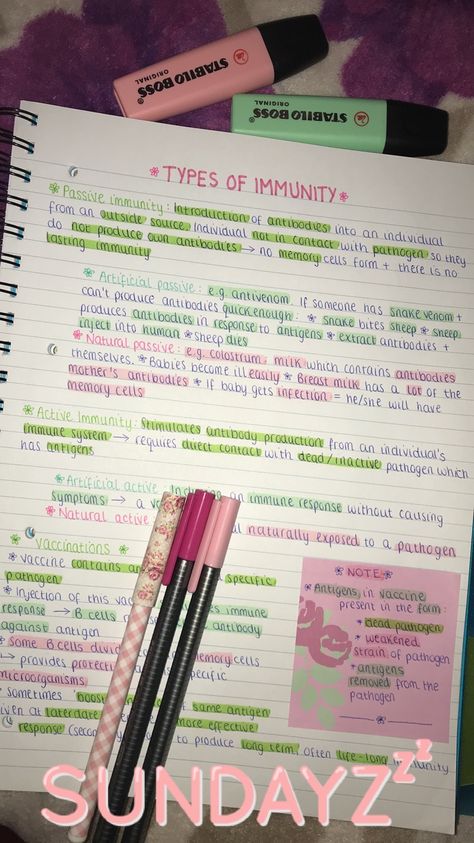 STABILO BOSS
ORIGINAL
STABILO BOSS
ORIGINAL
TYPES OF IMMUNITY
Passive immunity: Introduction of antibodies into an individual
from an outside source. Individual not in contact with pathogen so they
do not produce own antibodies → no memory cells form + there is no
lasting immunity
Artificial passive: e.g. antivenom. If someone has snake venom +
can't produce antibodies quick enough: * snake bites sheep * sheep
produces antibodies in response to antigens * extract antibodies +
inject into human * sheep dies
* Natural passive: e.g. colostrum, milk which contains antibodies
themselves. * Babies become ill easily * Breast milk has a lot of the
mother's antibodies * if baby gets infection = he/she will have
memory cells
Active Immunity: Stimulates antibody production from an individual's
immune system → requires direct contact with dead/inactive pathogen which
has antigens
Artificial active: an immune response without causing
symptoms → a
Natural active naturally exposed to a pathogen
Vaccinations
* Vaccine contains specific
pathogen
* Injection of this immune
response → B cells antibody
against antigen
* Some B cells memory cells
→ provides specific
microorganisms
* Sometimes of same antigen
given at later date more effective
response to produce long term, often life-long immunity
NOTE
* Antigens in vaccine
present in the form:
* dead pathogen
* weakened
strain of pathogen
* antigens
removed from the
pathogen
SUNDAYZzz